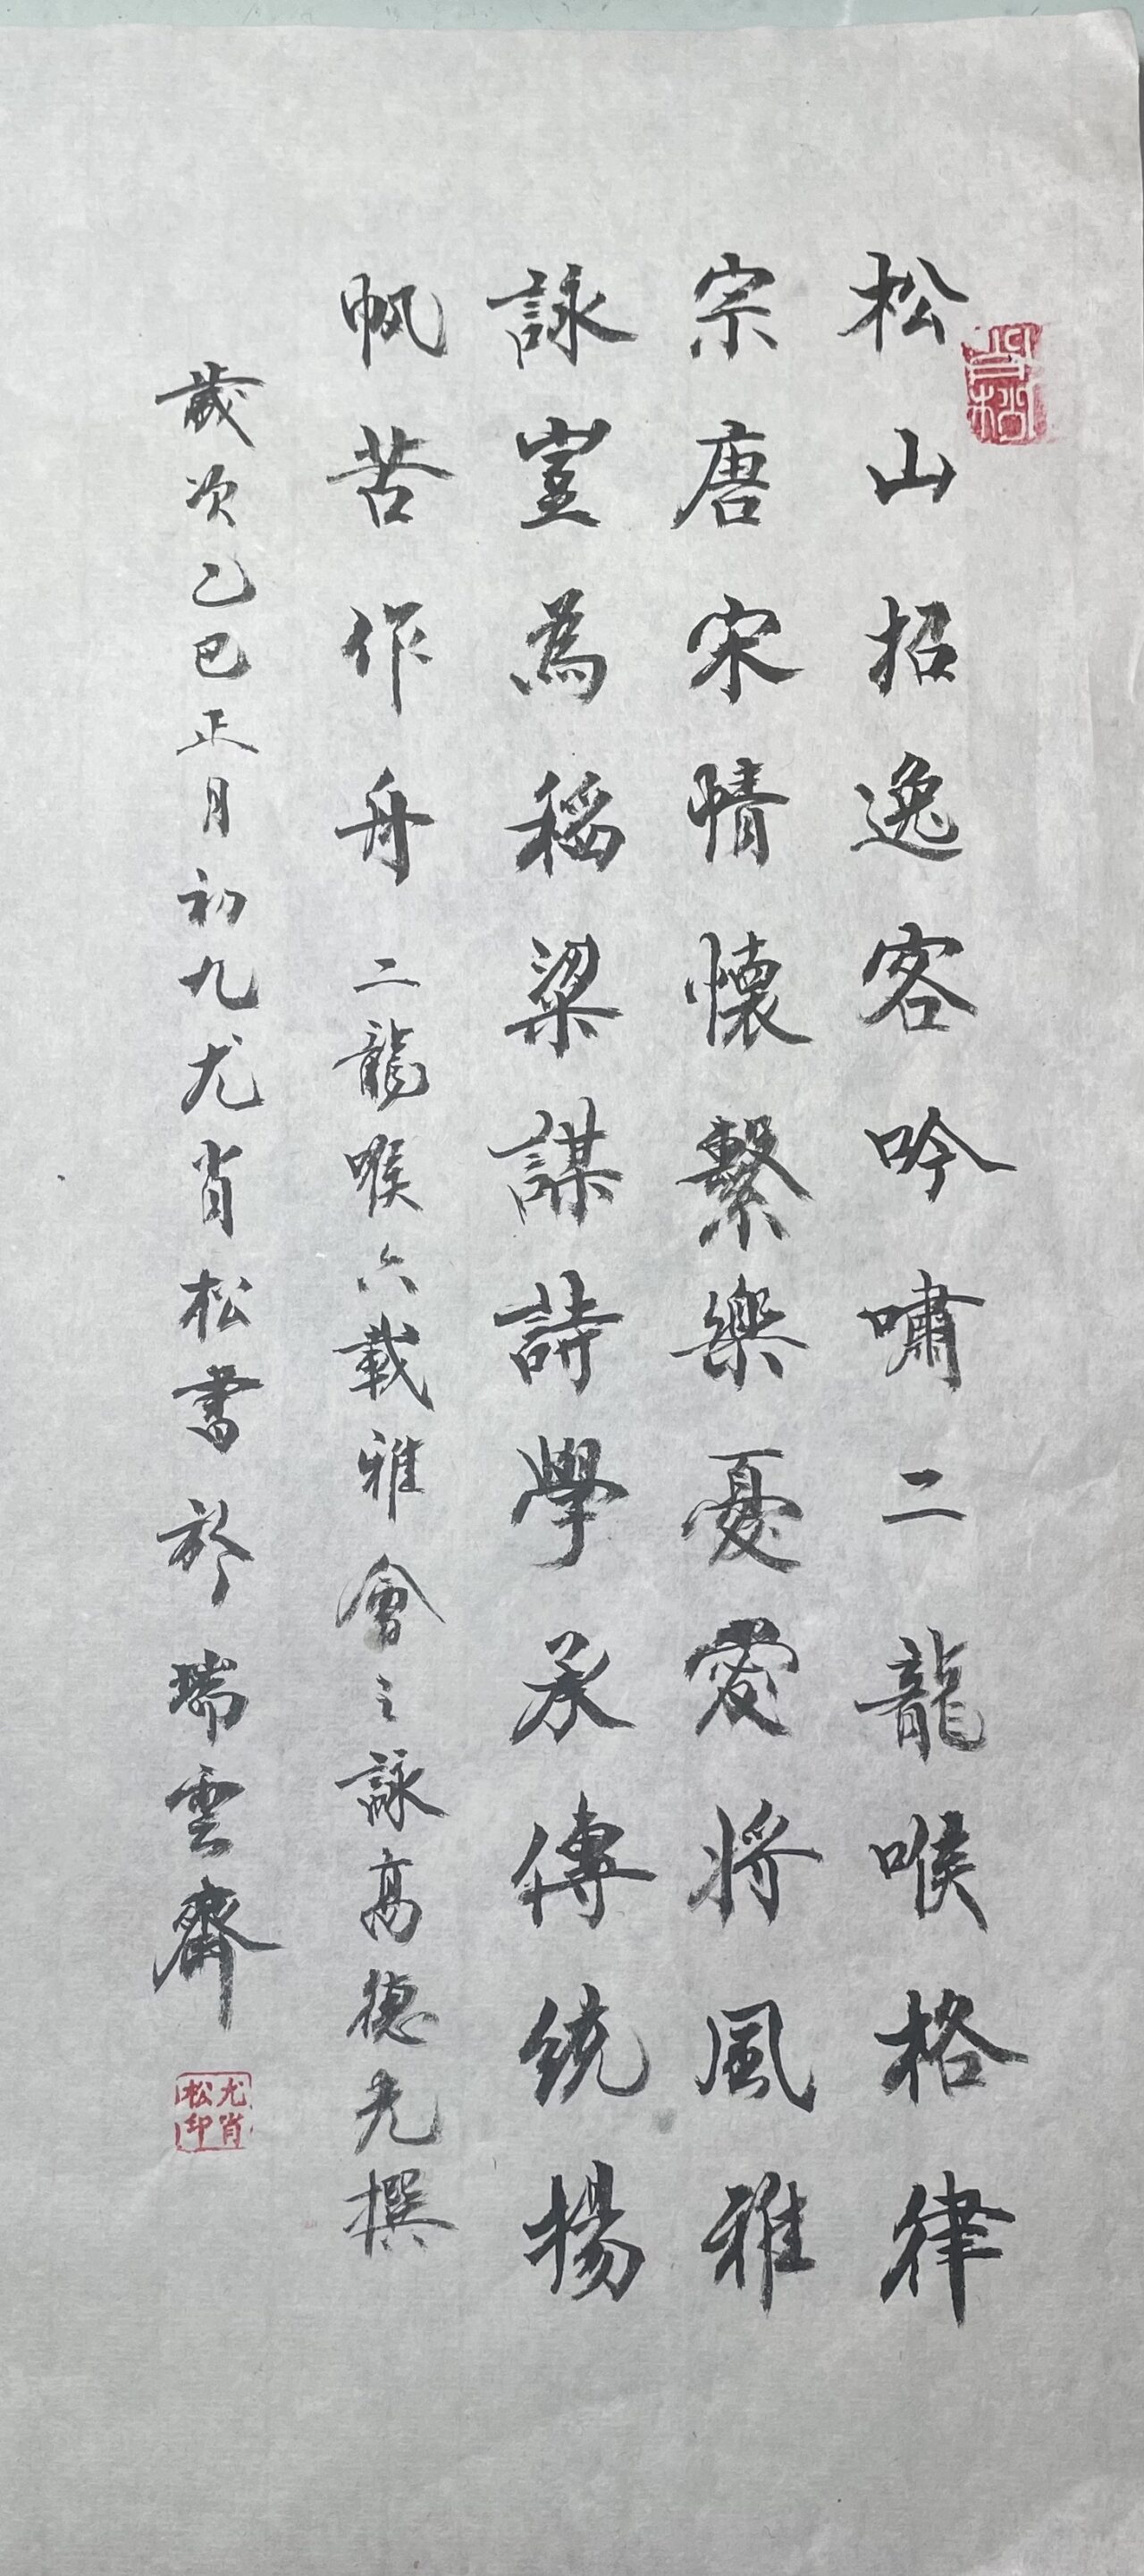 松山招逸客吟嘯二龍喉格律
宗唐宋情懷繫樂憂愛將風雅
詠豈為稻粱謀詩學承傳統揚
帆苦作舟 二龍喉六載雅會之詠高德光撰
歲次乙巳正月初九尤肖松書於瑞雲齋
肖松
尤肖松印